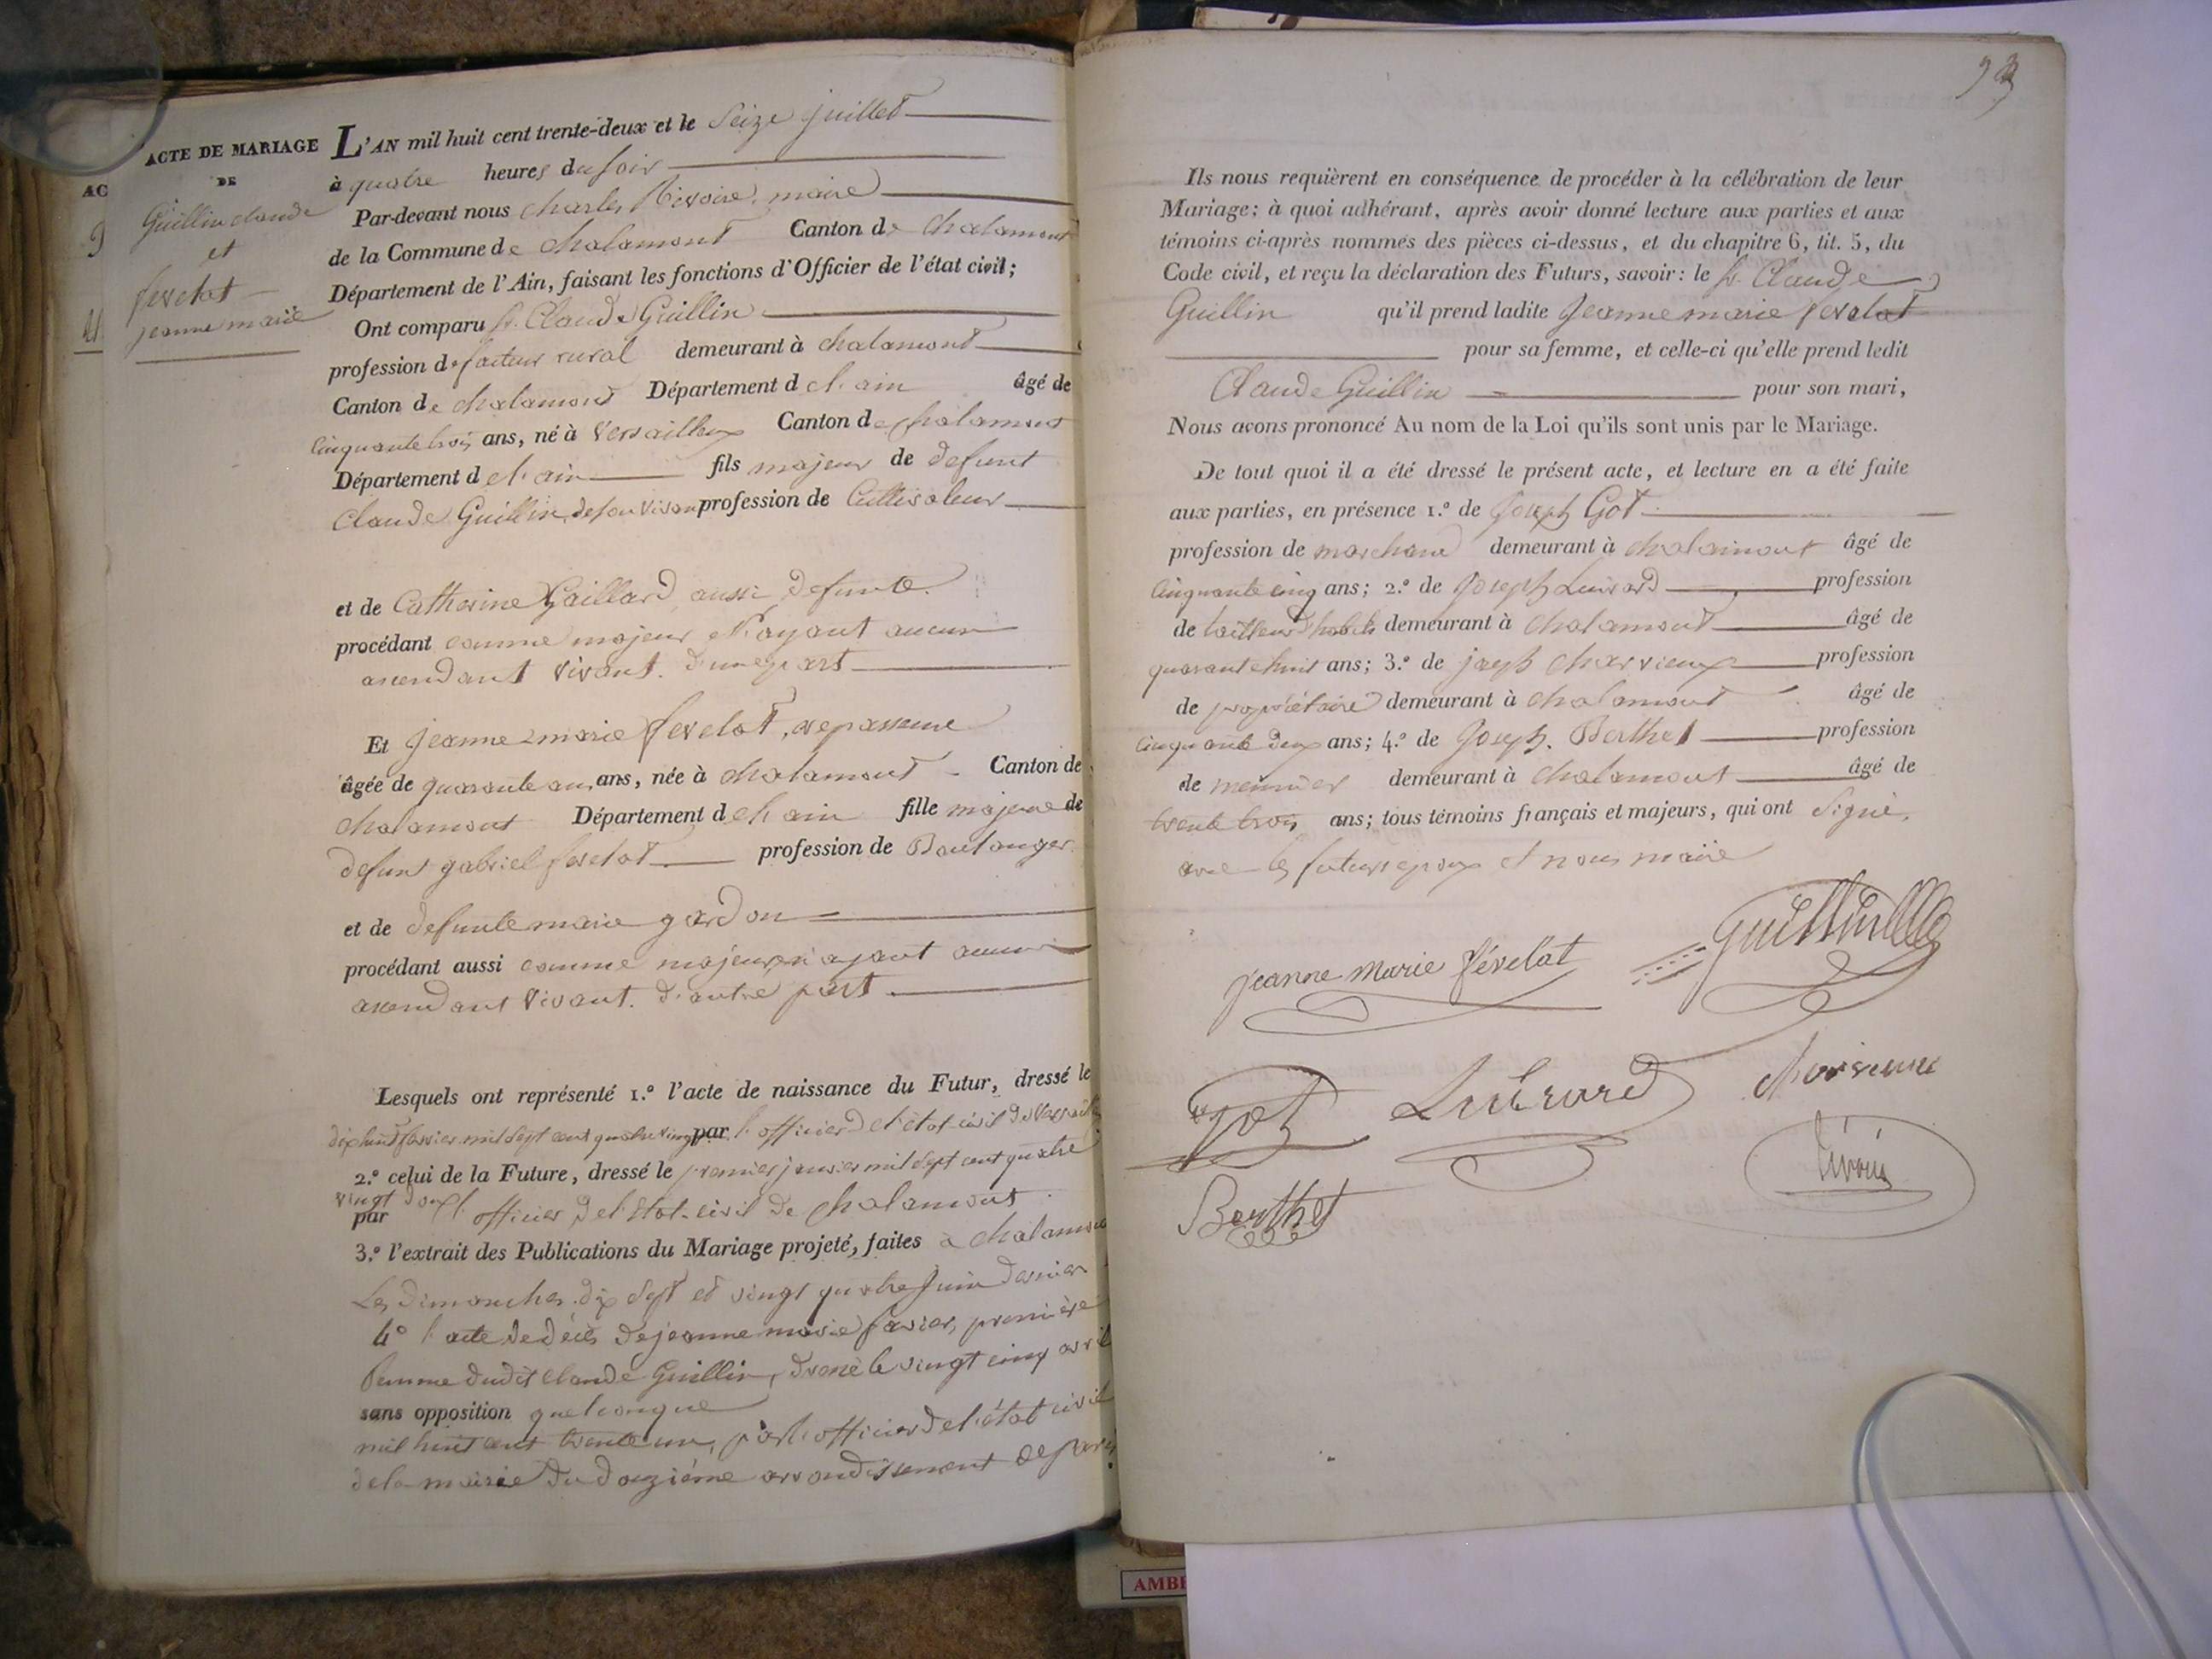 ACTE DE MARIAGE
DE
Guillin claude
et
fevelat
jeanne marie
AC
L'AN mil huit cent trente-deux et le Seize juillet
à quatre heures du soir
Par-devant nous charles Rivoire, maire
de la Commune de chalamont Canton de chalamont
Département de l'Ain, faisant les fonctions d'Officier de l'état civil;
Ont comparu sr. Claude Guillin
profession de facteur rural demeurant à chalamont
Canton de chalamont Département d el'ain âgé de
Cinquante trois ans, né à Versailleux Canton de chalamont
Département d el'ain fils majeur de defunt
Claude Guillin, de son vivant profession de Cultivateur
et de Catherine Gaillard, aussi defunte.
procédant comme majeur et n'ayant aucun
ascendant vivant. d'une part
Et Jeanne marie fevelat, repasseuse
âgée de quarante ans, ans, née à chalamont Canton de
chalamont Département d el'ain fille majeure de
defunt gabriel fevelat profession de Boulanger
et de defunte marie gardon
procédant aussi comme majeure n'ayant aucun
ascendant vivant. d'autre part
Lesquels ont représenté 1.º l'acte de naissance du Futur, dressé le
dix huit fevrier mil sept cent quatre vingt par l'officier de l'état civil de
2.º celui de la Future, dressé le premier janvier mil sept cent quatre
vingt
par l'officier de l'état-civil de chalamont
3.º l'extrait des Publications du Mariage projeté, faites à chalamont
Les dimanches dix sept et vingt quatre juin dernier
4º l'acte de décès de jeanne marie favier, première
femme dudit claude Guillin, dressé le vingt cinq avril
sans opposition quelconque
mil huit cent trente un, par l'officier de l'état civil
de la mairie du douzième arrondissement de paris
93
Ils nous requièrent en conséquence de procéder à la célébration de leur
Mariage; à quoi adhérant, après avoir donné lecture aux parties et aux
témoins ci-après nommés des pièces ci-dessus, et du chapitre 6, tit. 5, du
Code civil, et reçu la déclaration des Futurs, savoir: le sr. Claude
Guillin qu'il prend ladite Jeanne marie fevelat
pour sa femme, et celle-ci qu'elle prend ledit
Claude Guillin pour son mari,
Nous avons prononcé Au nom de la Loi qu'ils sont unis par le Mariage.
De tout quoi il a été dressé le présent acte, et lecture en a été faite
aux parties, en présence 1.º de Joseph Got
profession de marchand demeurant à chalamont âgé de
Cinquante cinq ans; 2.º de Joseph Luirard profession
de tailleur d'habits demeurant à chalamont âgé de
quarante huit ans; 3.º de josph charvieux profession
de propriétaire demeurant à chalamont âgé de
Cinquante deux ans; 4.º de Joseph. Berthet profession
de meunier demeurant à chalamont âgé de
trente trois ans; tous témoins français et majeurs, qui ont signé,
avec les futurs epoux et nous maire
jeanne marie févelat
Guillin
Got
Luirard
charvieux
Berthet
AMBE